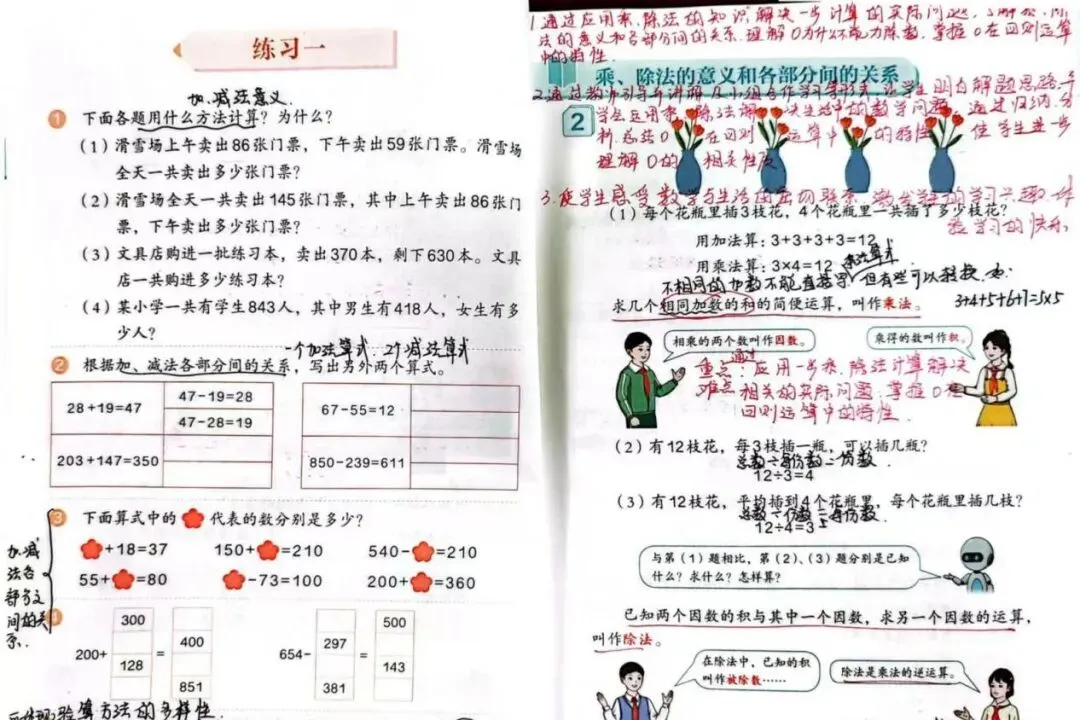 练习一
加、减法意义.
1 下面各题用什么方法计算?为什么?
(1)滑雪场上午卖出86张门票,下午卖出59张门票。滑雪场
全天一共卖出多少张门票?
(2)滑雪场全天一共卖出145张门票,其中上午卖出86张门
票,下午卖出多少张门票?
(3)文具店购进一批练习本,卖出370本,剩下630本。文具
店一共购进多少练习本?
(4)某小学一共有学生843人,其中男生有418人,女生有多
少人?
一个加法算式.2个减法算式
2 根据加、减法各部分间的关系,写出另外两个算式。
28+19=47
47-19=28
47-28=19
67-55=12
203+147=350
850-239=611
3 下面算式中的 代表的数分别是多少?
+18=37 150+ =210 540- =210
55+ =80 -73=100 200+ =360
加.减
法各
部分之
间的关
系.
200+
300
128
=
400
851
654-
297
381
=
500
143
验算方法的多样性.
1.通过应用乘、除法的知识,解决一步计算的实际问题,了解乘、除
法的意义和各部分间的关系.理解0为什么不能为除数,掌握0在四则运算
中的特性.
乘、除法的意义和各部分间的关系
2.通过教师引导与讲解及小组合作学习等形式,让学生明白解题思路
学生应用乘、除法解决生活中的数学问题.通过归纳.分
析.总结0在四则运算中的特性 使学生进一步
理解0的相关性质
2
3.使学生感受数学与生活的密切联系.激发学生的学习兴趣.体
验学习的快乐.
(1)每个花瓶里插3枝花,4个花瓶里一共插了多少枝花?
用加法算:3+3+3+3=12
用乘法算:3×4=12
乘法算式
不相同的加数不能直接写 但有些可以转换.如:
3+4+5+6+7=5×5
求几个相同加数的和的简便运算,叫作乘法。
相乘的两个数叫作因数。
乘得的数叫作积。
重点:通过应用一步乘、除法计算解决
难点 相关的实际问题.掌握0在
四则运算中的特性.
(2)有12枝花,每3枝插一瓶,可以插几瓶?
总数÷每份数=份数.
12÷3=4
(3)有12枝花,平均插到4个花瓶里,每个花瓶里插几枝?
总数÷份数=每份数.
12÷4=3
与第(1)题相比,第(2)、(3)题分别是已知
什么?求什么?怎样算?
已知两个因数的积与其中一个因数,求另一个因数的运算,
叫作除法。
在除法中,已知的积
叫作被除数……
除法是乘法的逆运算。